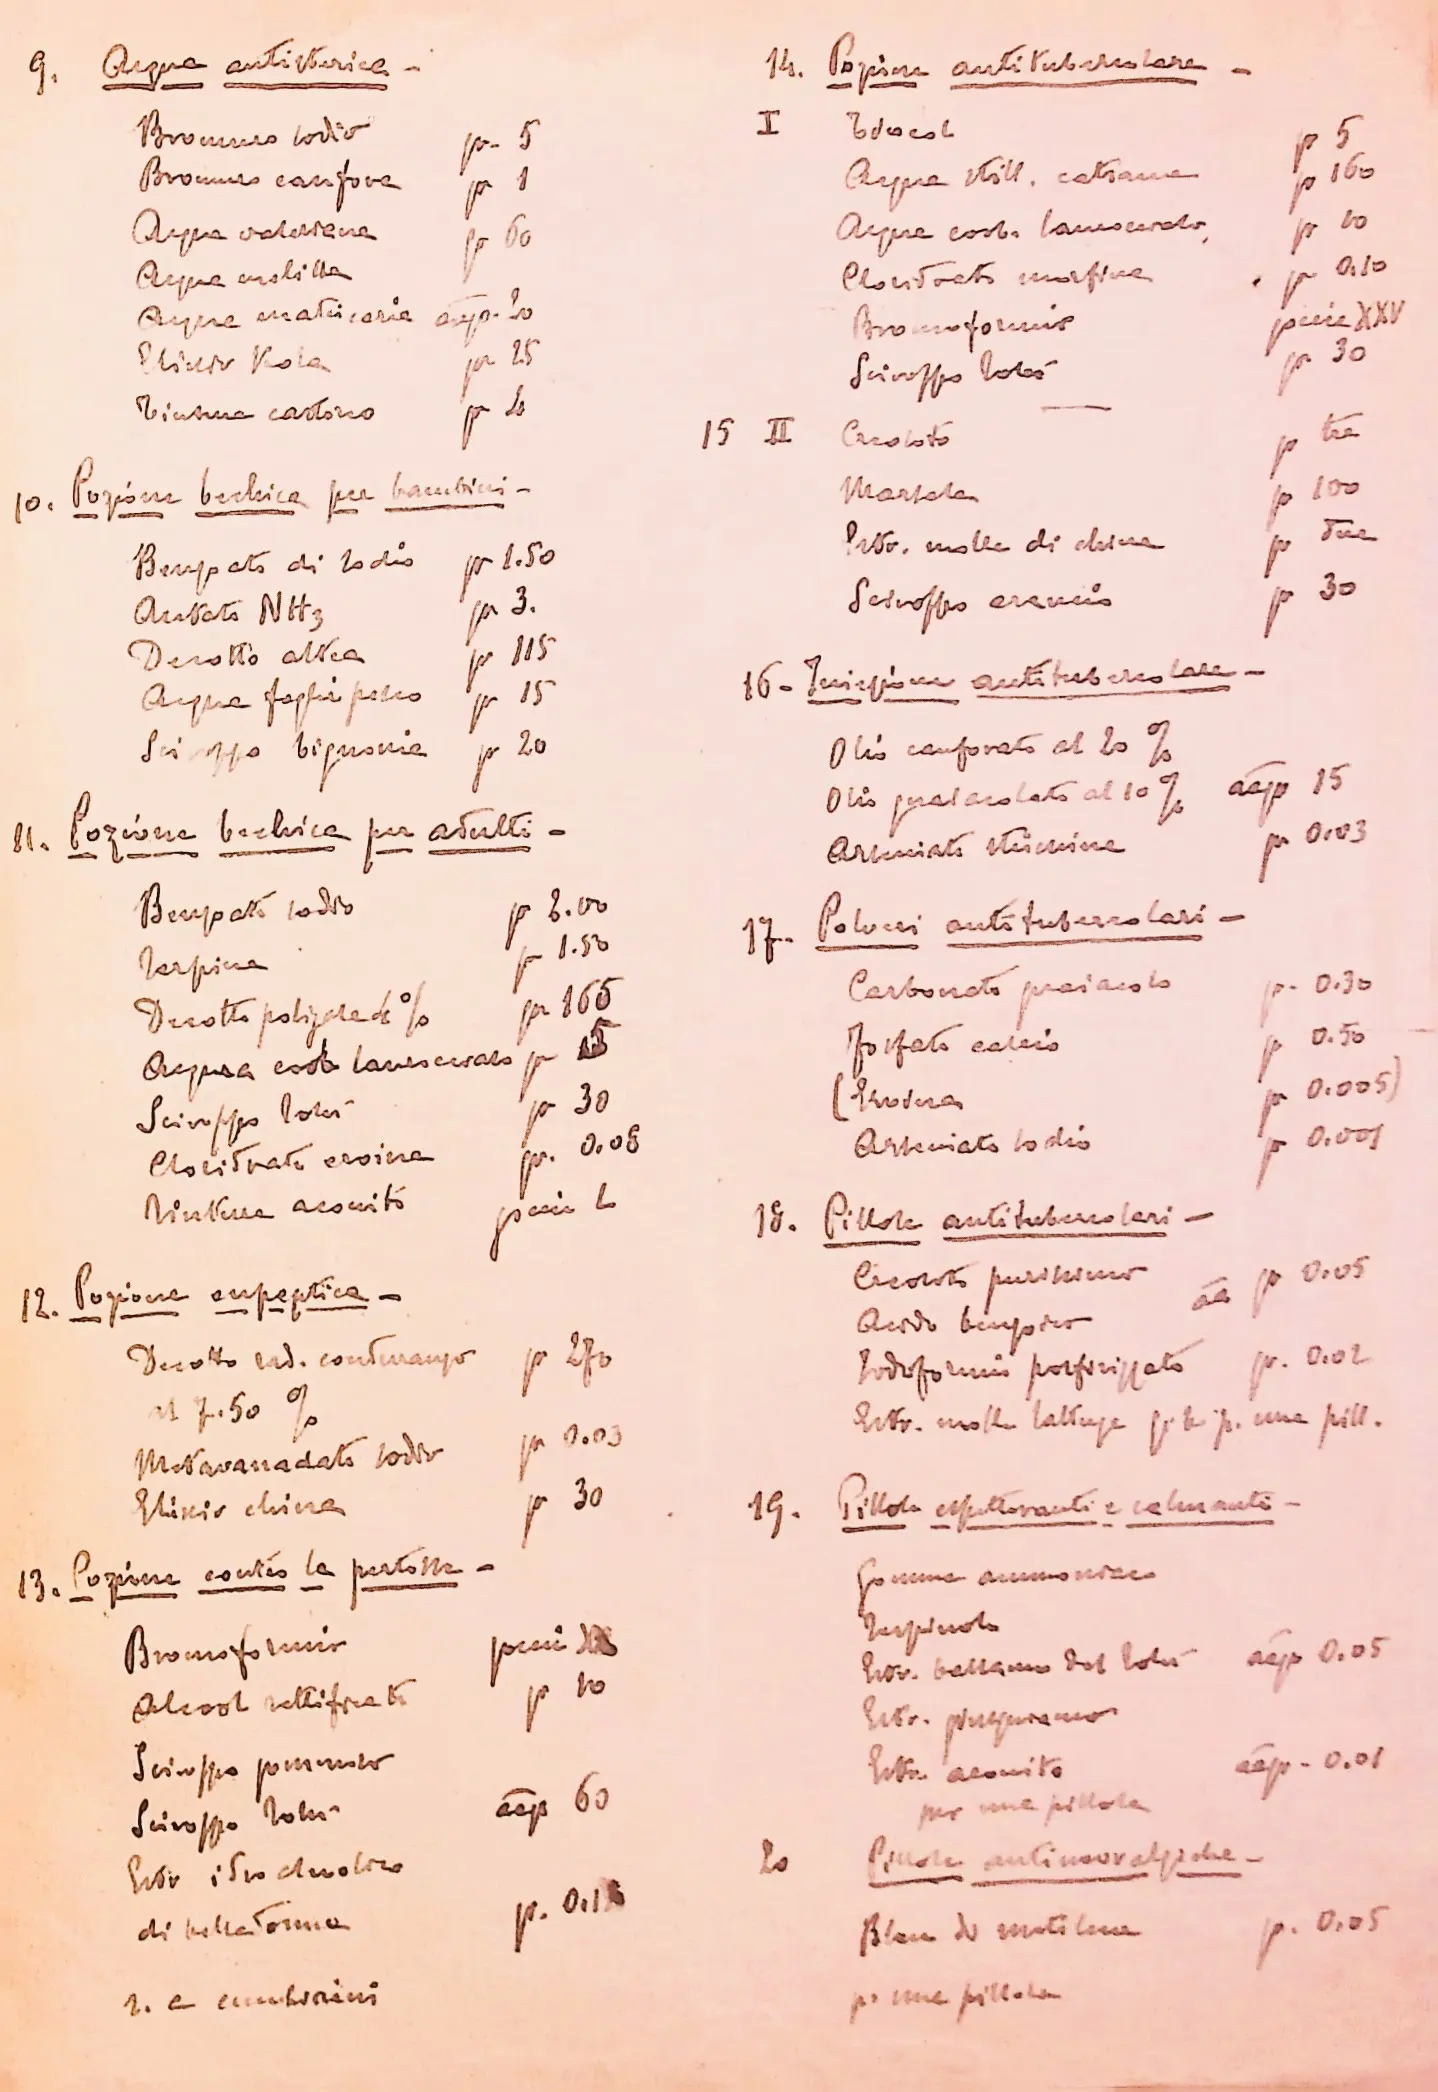 9. Acqua antisterica -
Bromuro sodio gr. 5
Bromuro canfora gr 1
Acqua valeriana gr 60
Acqua melissa
Acqua matricaria aagr. 20
Elixir Kola gr 25
Tintura castoreo gr 2
10. Pozione bechica per bambini -
Benzoato di sodio gr 1.50
Acetato NH3 gr 3.
Decotto altea gr 115
Acqua foglie pesco gr 15
Sciroppo bignonia gr 20
11. Pozione bechica per adulti -
Benzoato sodio gr 2.00
Terpina gr 1.50
Decotto poligala % gr
Acqua coob. lauroceraso gr
Sciroppo Tolù gr 30
Cloridrato eroina gr. 0.08
Tintura aconito goccie L
12. Pozione eupeptica -
Decotto rad. condurango gr 270
al 7.50 %
Metavanadato sodio gr 0.03
Elixir china gr 30
13. Pozione contro la pertosse -
Bromoformio goccie
Alcool rettificato gr 10
Sciroppo
Sciroppo Tolù aagr 60
Estr idroalcolico
di belladonna gr.
s. a emulsioni
14. Pozione antitubercolare -
I Tiocol gr 5
Acqua still. catrame gr 160
Acqua coob. lauroceraso, gr 10
Cloridrato morfina gr 0.10
Bromoformio goccie XXV
Sciroppo Tolù gr 30
15 II Creosoto gr tre
Marsala gr 100
Estr. molle di china gr due
Sciroppo arancio gr 30
16 - Iniezione antitubercolare -
Olio canforato al 20 %
Olio guaiacolato al 10 % aagr 15
Arseniato stricnina gr 0.03
17. Polveri antitubercolari -
Carbonato guaiacolo gr. 0.30
Fosfato calcio gr 0.50
(Eroina gr 0.005)
Arseniato sodio gr 0.001
18. Pillole antitubercolari -
Creosoto purissimo
Acido benzoico aa gr 0.05
Iodoformio porfirizzato gr. 0.02
Estr. molle lattuga p. una pill.
19. Pillole espettoranti e calmanti -
Gomma ammoniaco
Terpinolo
Estr. balsamo del Tolù aagr 0.05
Estr. giusquiamo
Estr. aconito aagr. 0.01
per una pillola
20 Pillole antinevralgiche -
Bleu di metilene gr. 0.05
p. una pillola